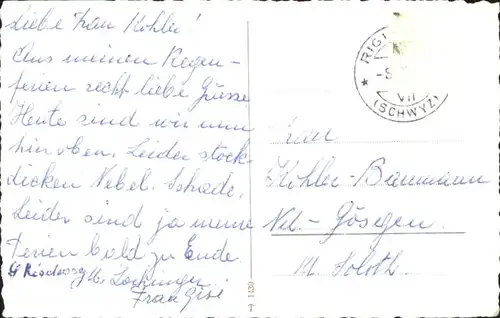 Liebe Frau Kohler!
Aus meinen Regen-
ferien recht liebe Grüsse
Heute sind wir nun
hier oben. Leider stock-
dicken Nebel. Schade,
Leider sind ja meine
Ferien bald zu Ende
Frau Gisi
RIGI
VII
(SCHWYZ)
Frau
Kohler-Baumann
Nd.-Gösgen
Kt. Soloth.
1120